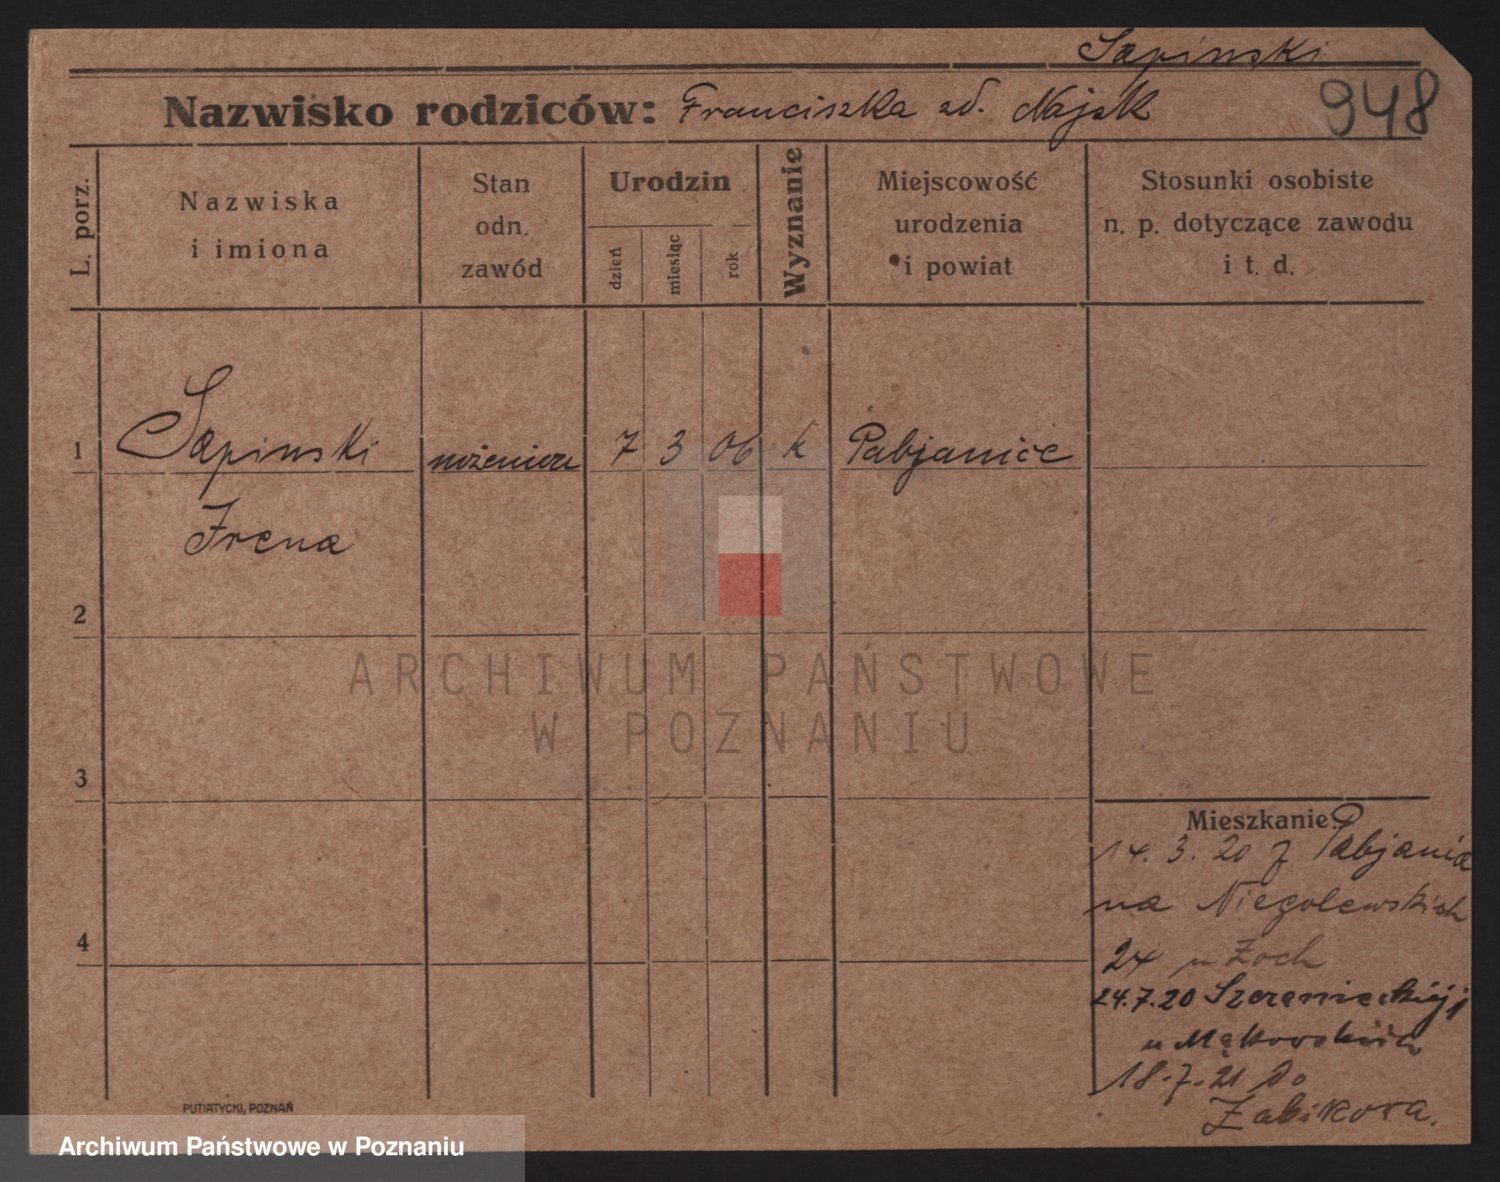 Sapinski
Nazwisko rodziców: Franciszka zd. Najak
948
L. porz.
Nazwiska
i imiona
Stan
odn.
zawód
Urodzin
dzień
miesiąc
rok
Wyznanie
Miejscowość
urodzenia
i powiat
Stosunki osobiste
n. p. dotyczące zawodu
i t. d.
1
Sapinski
7 3 06 k Pabjanice
Irena
2
3
4
ARCHIWUM PAŃSTWOWE
W POZNANIU
Mieszkanie:
14. 3. 20 z Pabjanic
na Niegolewskich
24 u Zoch
24.7.20
u
18.7.21 do
Żabikova.
PUTIATYCKI, POZNAŃ
Archiwum Państwowe w Poznaniu